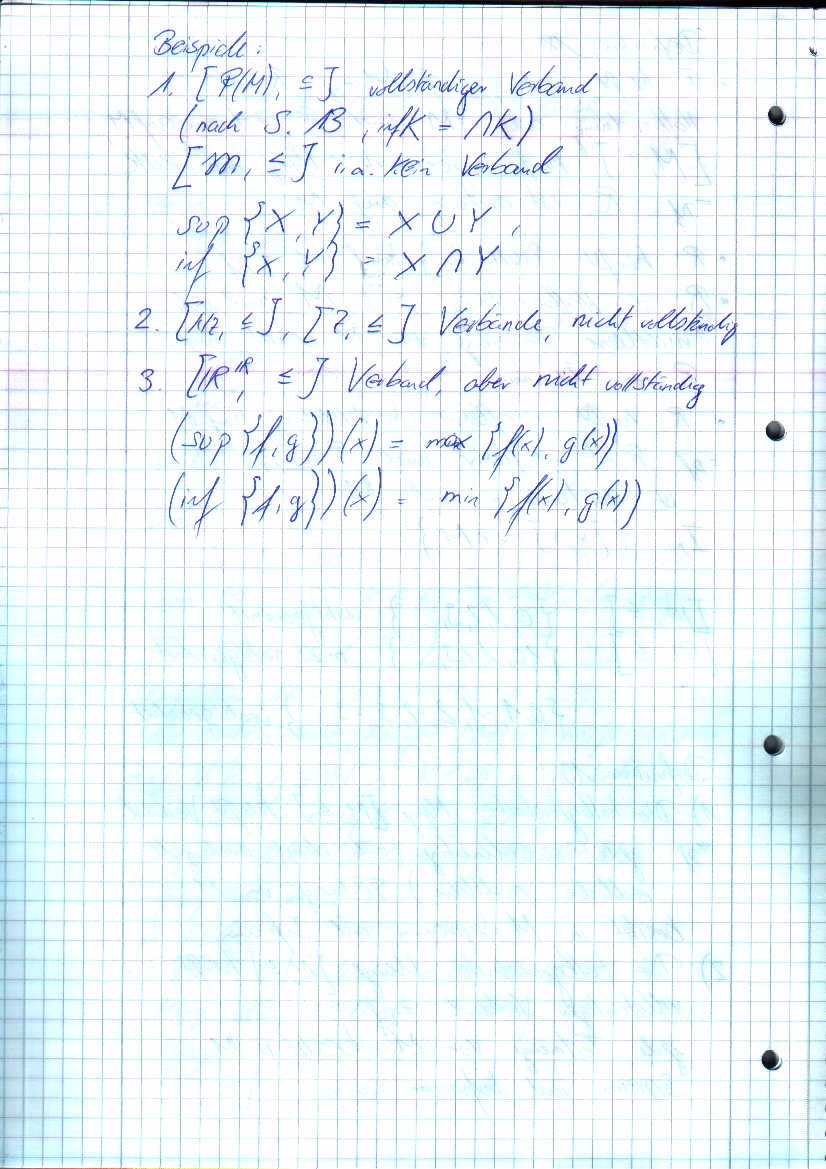 Beispiele:
1. [P(M), ⊆] vollständiger Verband
(nach S. 13, inf K = ∩K)
[𝔐, ⊆] i.a. kein Verband
sup {X, Y} = X ∪ Y,
inf {X, Y} = X ∩ Y
2. [ℕ, ≤], [ℤ, ≤] Verbände, nicht vollständig
3. [ℝ^ℝ, ≤] Verband, aber nicht vollständig
(sup {f, g})(x) = max {f(x), g(x)}
(inf {f, g})(x) = min {f(x), g(x)}